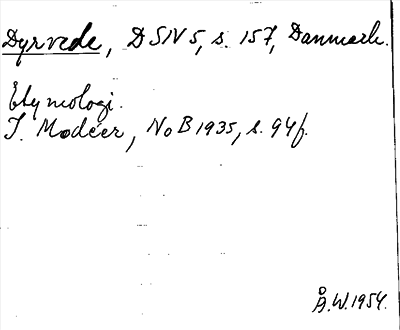 Dyrvede, DSIV 5, s. 157, Danmark.
Etymologi.
I. Modéer, NoB 1935, s. 94f.
Å.W. 1954.